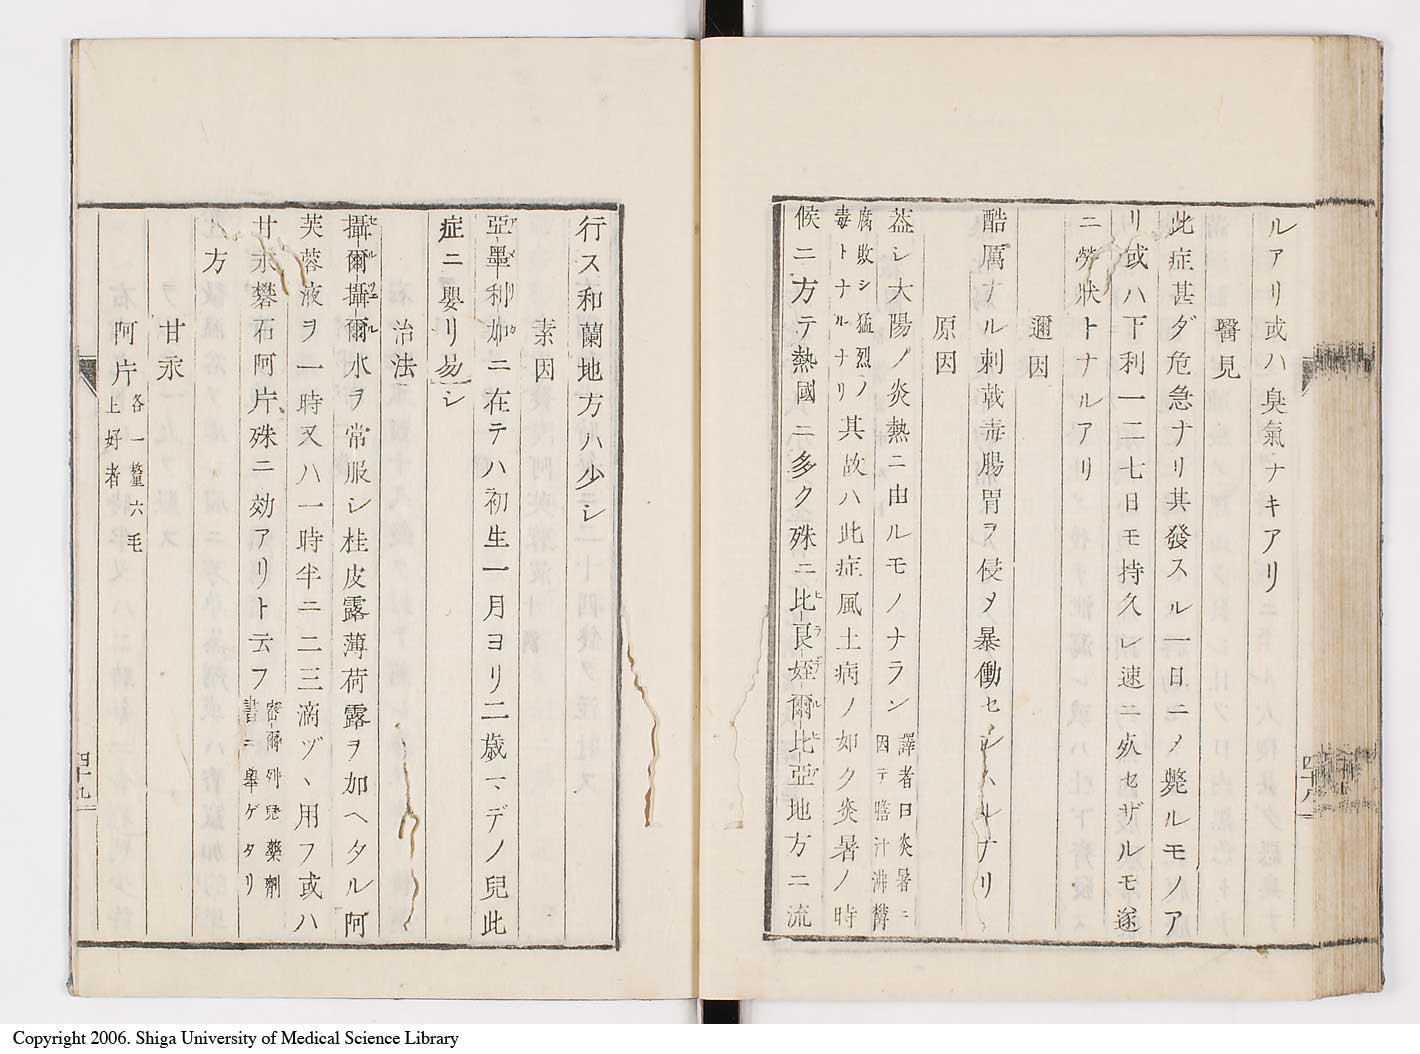 ルアリ或ハ臭氣ナキアリ
醫見
此症甚ダ危急ナリ其發スル一日ニメ斃ルモノア
リ或ハ下利一二七日モ持久レ速ニ㽱セザルモ遂
ニ勞狀トナルアリ
邇因
酷厲ナル刺戟毒腸胃ヲ侵メ暴働セシムルナリ
原因
葢シ大陽ノ炎熱ニ由ルモノナラン譯者曰炎暑ニ
因テ膽汁沸欝
腐敗シ猛烈ノ
毒トナルナリ其故ハ此症風土病ノ如ク炎暑ノ時
候ニ方テ熱國ニ多ク殊ニ比良姪爾比亞地方ニ流
四十八
行ス和蘭地方ハ少シ
素因
亞墨利加ニ在テハ初生一月ヨリ二歳マデノ兒此
症ニ嬰リ易シ
治法
攝爾攝爾水ヲ常服シ桂皮露薄荷露ヲ加ヘタル阿
芙蓉液ヲ一時又ハ一時半ニ二三滴ヅヽ用フ或ハ
甘汞礬石阿片殊ニ効アリト云フ
藥劑
書ニ擧ゲタリ
方
甘汞
阿片各一釐六毛
上好者
四十九